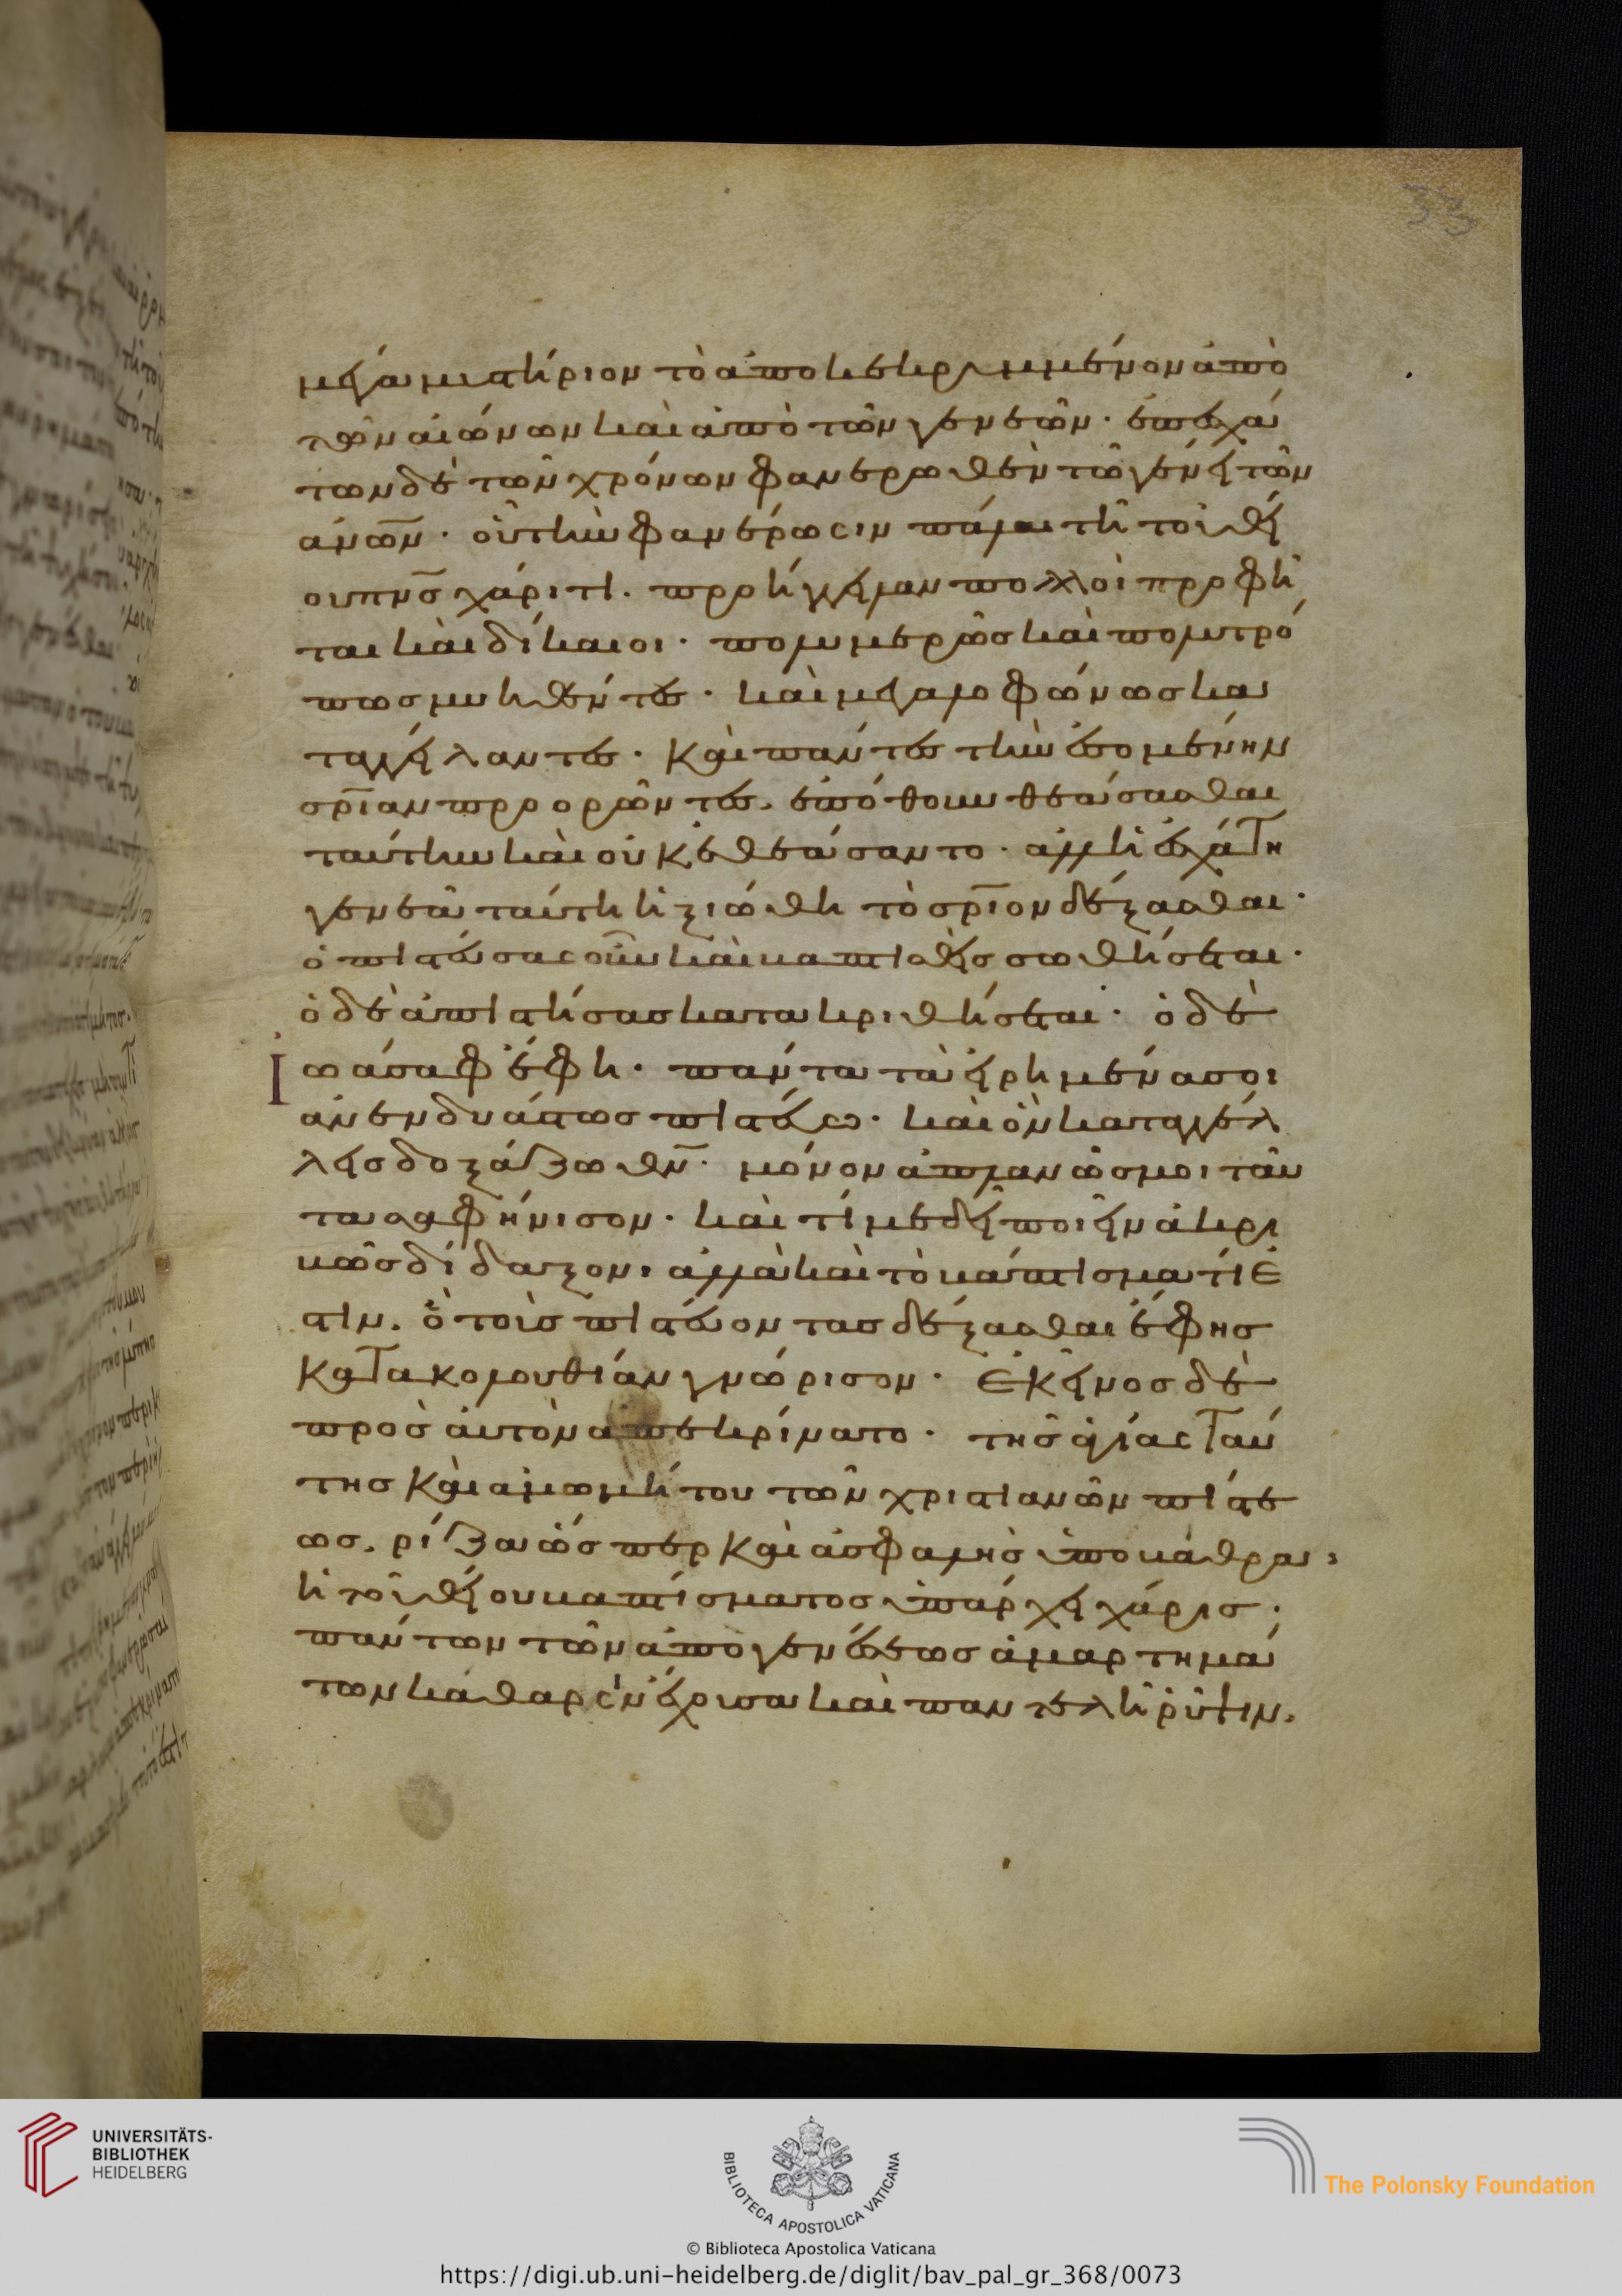 33
μέγα μυστήριον τὸ ἀποκεκρυμμένον ἀπὸ
τῶν αἰώνων καὶ ἀπὸ τῶν γενεῶν· ἐπεσχά
των δὲ τῶν χρόνων φανερωθὲν τῶ γένει τῶν
ἀνω̅ν· οὗ τὴν φανέρωσιν πάλαι τῆ τοῦ θεί
ου πνς̅ χάριτι. προήγγειλαν πολλοὶ προφῆ
ται καὶ δίκαιοι· πολυμερῶς καὶ πολυτρό
πως μυηθέντες· καὶ μεγαλοφώνως κα
ταγγείλαντες· καὶ πάντες τὴν ἐσομένην
σρι̅αν προορῶντες. ἐπόθουν θεάσασθαι
ταύτην καὶ οὐκ ἐθεάσαντο· ἀλλ ἡ ἐσχάτη
γενεὰ αὕτη ἠξιώθη τὸ σρι̅ον δέξασθαι·
ὁ πιστεύσας οὖν καὶ βαπτισθεὶς σωθήσεται·
ὁ δὲ ἀπιστήσας κατακριθήσεται· ὁ δὲ
Ἰωάσαφ ἔφη· πάντα τὰ εἰρημένα σοι
ἀνενδυάστως πιστεύω· καὶ ὃν καταγγέλ
λεις δοξάζω θν̅· μόνον ἀπλανῶς μοι ταῦ
τα σαφήνισον· καὶ τί με δεῖ ποιεῖν ἀκρι
βῶς δίδαξον· ἀλλὰ καὶ τὸ βάπτισμα τί ἐ
στιν. ὃ τοὺς πιστεύοντας δέξασθαι ἔφης
κατακολουθίαν γνώρισον· ἐκεῖνος δὲ
πρὸς αὐτὸν ἀπεκρίνατο· τῆς ἁγίας ταύ
της καὶ ἀμωμήτου τῶν χριστιανῶν πίστε
ως. ῥίζα ὥσπερ καὶ ἀσφαλὴς ὑποβάθρα,
ἡ τοῦ θείου βαπτίσματος ὑπάρχει χάρις·
πάντων τῶν ἀπὸ γενέσεως ἁμαρτημά
των κάθαρσιν ἔχουσα καὶ παντελῆ ῥύψιν.
UNIVERSITÄTS-
BIBLIOTHEK
HEIDELBERG
BIBLIOTECA APOSTOLICA VATICANA
The Polonsky Foundation
© Biblioteca Apostolica Vaticana
https://digi.ub.uni-heidelberg.de/diglit/bav_pal_gr_368/0073